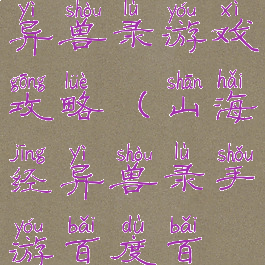 yì shòu lù yóu xì
异兽录游戏
gōng lüè shān hǎi
攻略（山海
jīng yì shòu lù shǒu
经异兽录手
yóu bǎi dù bǎi
游百度百